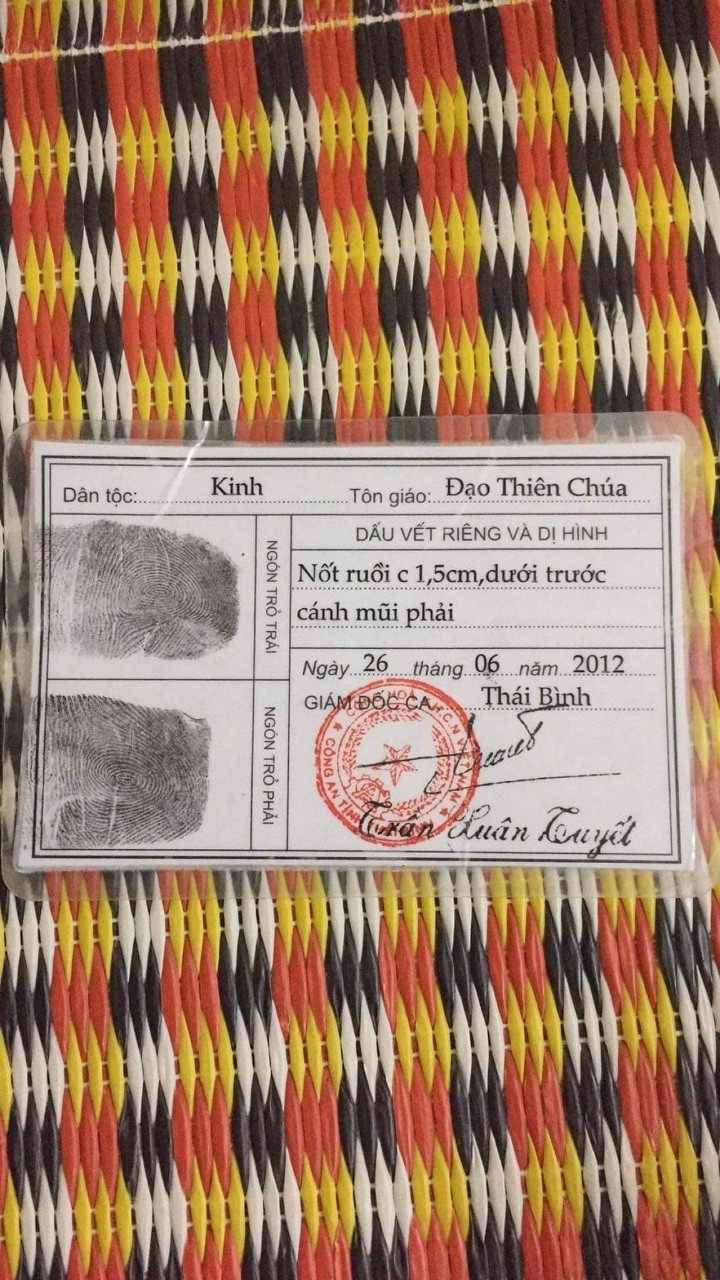 Dân tộc: Kinh Tôn giáo: Đạo Thiên Chúa
NGÓN TRỎ TRÁI
DẤU VẾT RIÊNG VÀ DỊ HÌNH
Nốt ruồi c 1,5cm,dưới trước
cánh mũi phải
Ngày 26 tháng 06 năm 2012
NGÓN TRỎ PHẢI
GIÁM ĐỐC CA Thái Bình
CÔNG AN TỈNH
Trần Xuân Tuyết